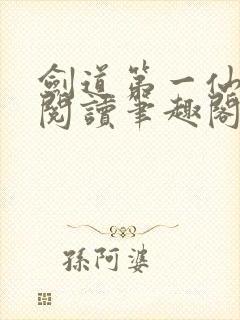 劍道第一仙
閱讀筆趣閣
孫阿婆